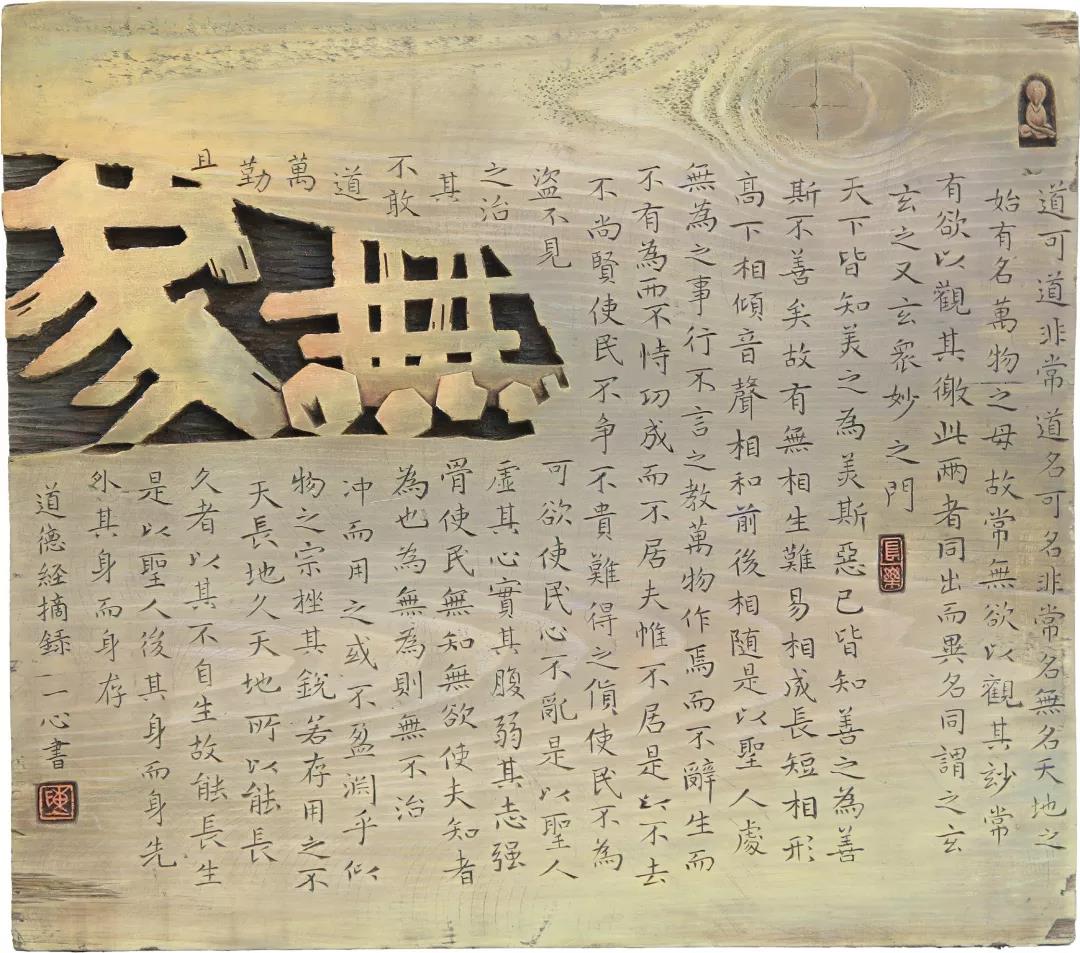 道可道非常道名可名非常名無名天地之
始有名萬物之母故常無欲以觀其妙常
有欲以觀其徼此兩者同出而異名同謂之玄
玄之又玄眾妙之門
長樂
天下皆知美之為美斯惡已皆知善之為善
斯不善矣故有無相生難易相成長短相形
高下相傾音聲相和前後相随是以聖人處
無為之事行不言之教萬物作焉而不辭生而
不有為而不恃功成而不居夫惟不居是以不去
不尚賢使民不争不貴難得之貨使民不為
盜不見可欲使民心不亂是以聖人
之治虛其心實其腹弱其志强
其骨使民無知無欲使夫知者
不敢為也為無為則無不治
道冲而用之或不盈淵乎似
萬物之宗挫其銳若存用之不
勤天長地久天地所以能長
且久者以其不自生故能長生
是以聖人後其身而身先
外其身而身存
道德經摘録 一心書
無